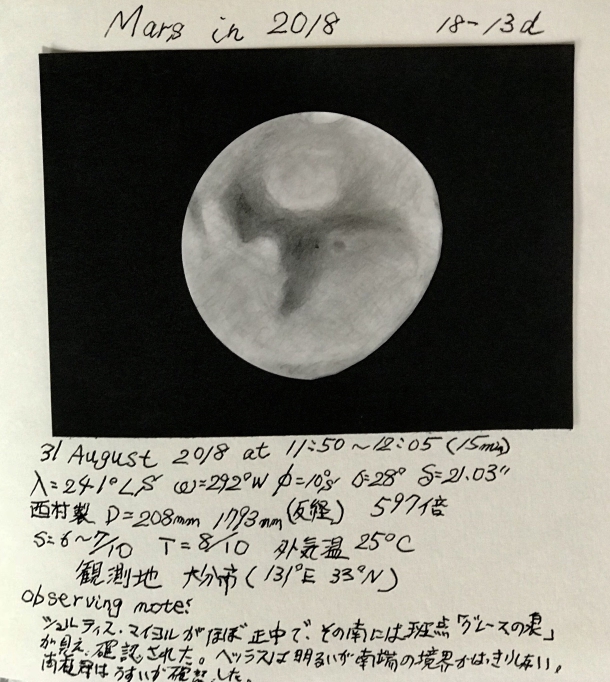 Mars in 2018 18-13d
31 August 2018 at 11:50~12:05 (15min)
λ=241°LS ω=292°W φ=10°S δ=28° δ=21.03"
西村製 D=208mm 1793mm (反経) 597倍
S=6~7/10 T=8/10 外気温 25°C
観測地 大分市 (131°E 33°N)
observing note:
シュルティス・マイヨルがほぼ正中で、その南には斑点「グレースの涙」
が見え、確認された。ヘッラスは明るいが南端の境界がはっきりしない。
南極冠はうすいが確認した。